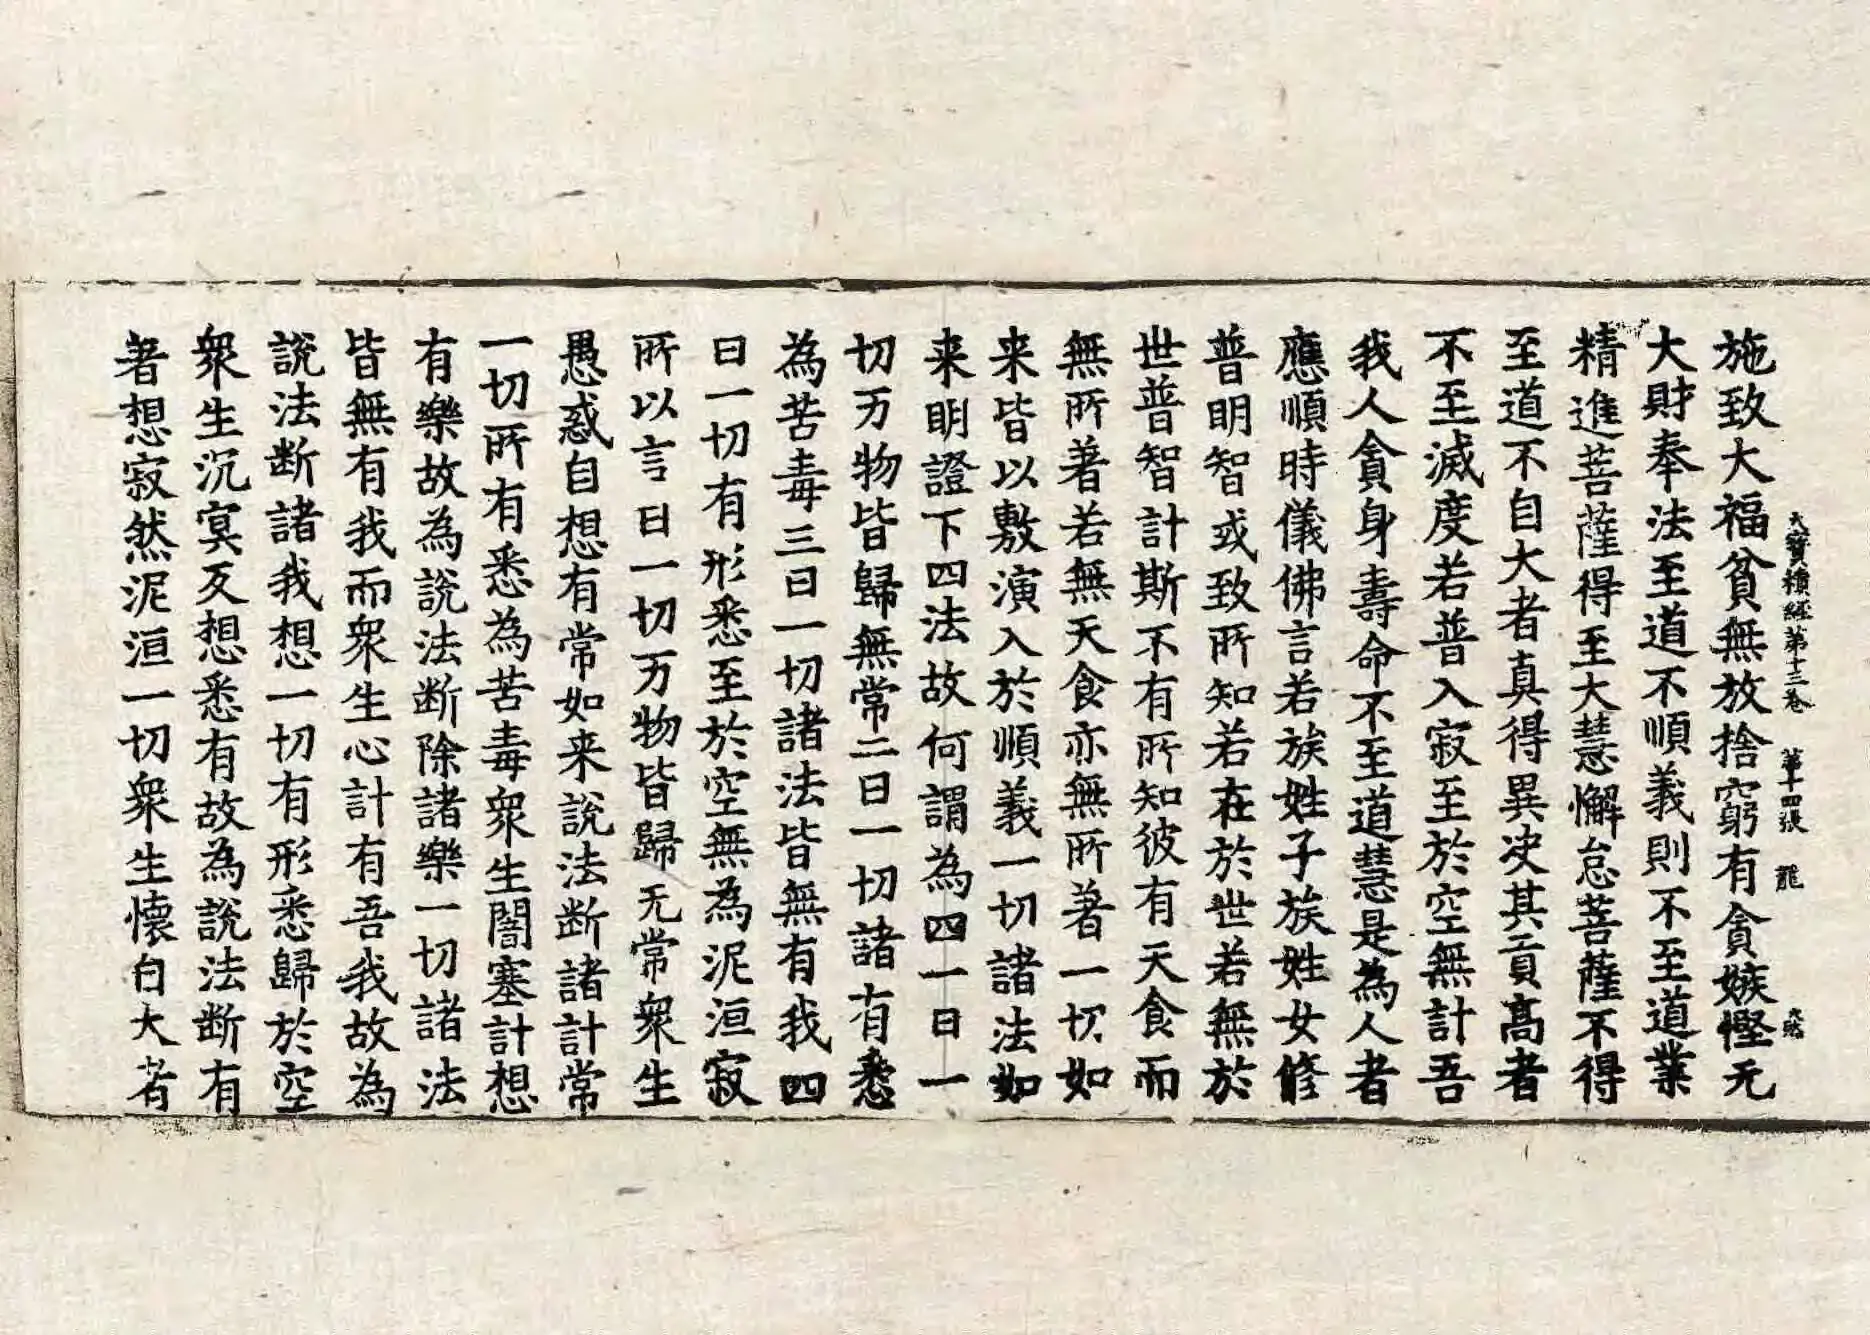 大寶積經第十三卷 第十四張 龍
施致大福貧無放捨窮有貪嫉慳无
大財奉法至道不順義則不至道業
精進菩薩得至大慧懈怠菩薩不得
至道不自大者真得異决其貢高者
不至滅度若普入寂至於空無計吾
我人貪身壽命不至道慧是為人者
應順時儀佛言若族姓子族姓女修
普明智或致所知若在於世若無於
世普智計斯不有所知彼有天食而
無所著若無天食亦無所著一切如
来皆以敷演入於順義一切諸法如
来明證下四法故何謂為四一曰一
切万物皆歸無常二曰一切諸有悉
為苦毒三曰一切諸法皆無有我四
曰一切有形悉至於空無為泥洹寂
所以言曰一切万物皆歸无常衆生
愚惑自想有常如来說法断諸計常
一切所有悉為苦毒衆生闇塞計想
有樂故為說法断除諸樂一切諸法
皆無有我而衆生心計有吾我故為
說法断諸我想一切有形悉歸於空
衆生沉冥反想悉有故為說法断有
著想寂然泥洹一切衆生懷自大者